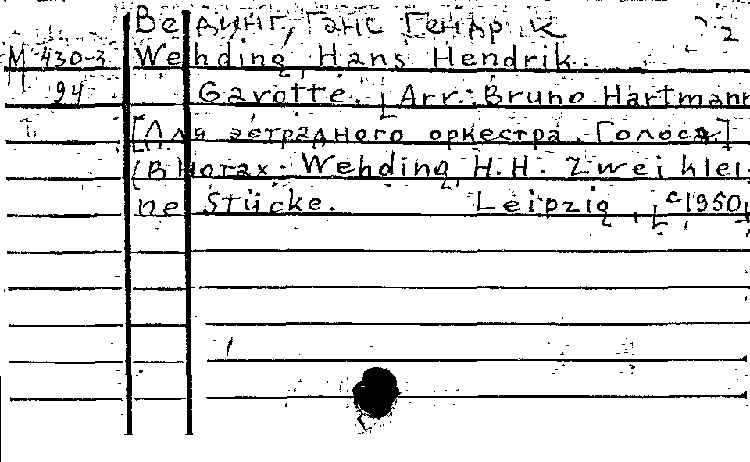 Вединг, Ганс Гендрик 2
М 430-3 Wehding, Hans Hendrik.
94 Gavotte. [Arr: Bruno Hartmann
[Для эстрадного оркестра. Голоса]
(В нотах: Wehding, H. H. Zwei klei-
ne Stücke. Leipzig, [c 1950]